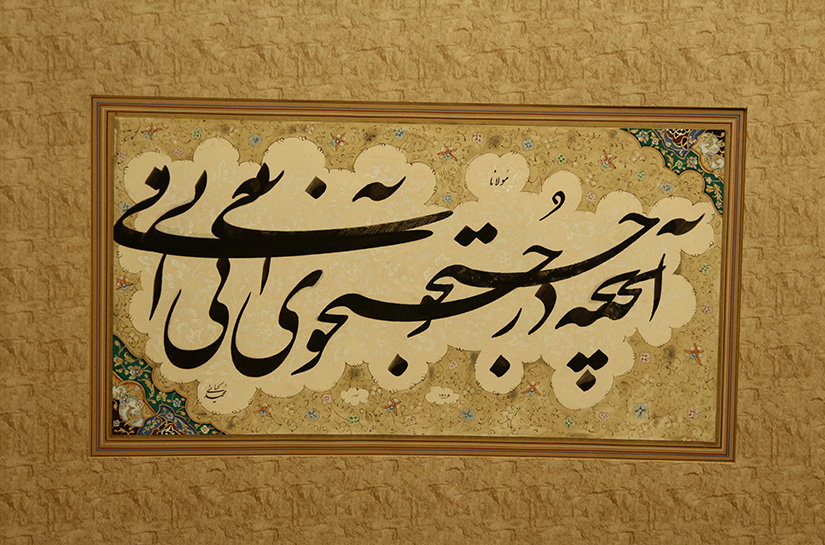 مولانا
آنچه در جستجوی آنی آنی